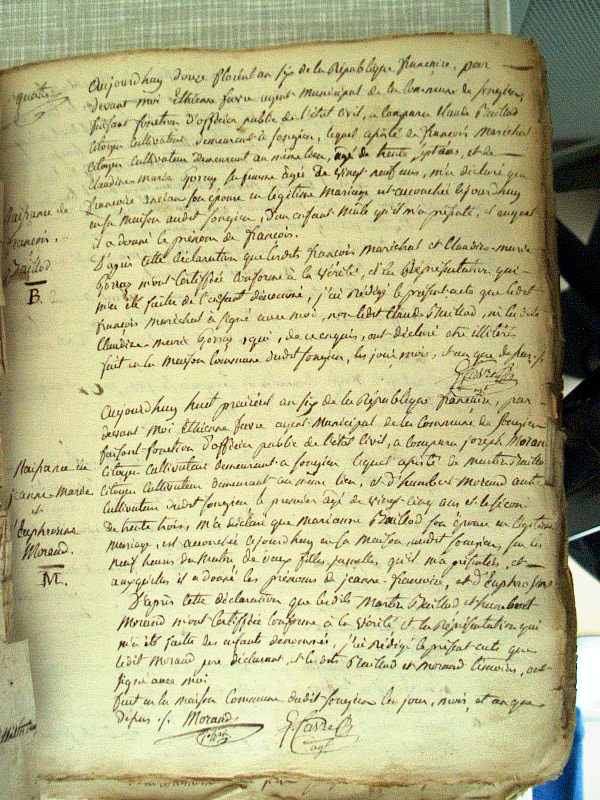 quatre
Aujourdhuy douze floreal an six de la République francaise, par
devant moi Ethienne favre agent Municipal de la Commune de songieu,
faisant fonction d'officier public de l'état civil, a comparu Claude
Citoyen Cultivateur demeurant à songieu, lequel apisté de francois Maréchal
Citoyen Cultivateur demeurant au même lieu, agé de trente ans, et de
Claudine Marie Gorray sa femme agée de vingt neuf ans, m'a déclaré que
francoise ancian son épouse en légitime Mariage est accouchée cejourdhuy
en sa Maison audit songieu, d'un enfant Mâle qu'il m'a présenté, et auquel
il a donné le prénom de francois.
D'après cette déclaration que lesdits francois maréchal et Claudine-marie
Gorray m'ont certifiée conforme à la vérité, et la Représentation qui
m'a été faite de l'enfant dénommé, j'ai rédigé le présent acte que ledit
francois maréchal a signé avec moi, non ledit Claude ni ladite
Claudine marie Gorray, que, de ce enquis, ont déclaré etre illitérés.
fait en la Maison Commune dudit songieu, les jour, mois, et an que depus. /.
Naifance de
francois,
B.
Aujourdhuy huit prairéal an six de la République francaise, par
devant moi Ethienne favre agent Municipal de la Commune de songieu
faisant fonction d'officier public de l'état Civil, a comparu joseph Moran
Citoyen Cultivateur demeurant a songieu lequel apisté de Martin
Citoyen Cultivateur demeurant au même lieu, et d'humbert Morand aussi
Cultivateur dudit songieu le premier agé de vingt Cinq ans et le second
de trente trois, m'a déclaré que Marianne son épouse en légitime
mariage, est accouchée cejourdhuy en sa Maison audit songieu, sur les
neuf heures du matin, de deux filles jumelles, qu'il m'a présentés, et
auxquelles il a donné les prénoms de jeanne-francoise, et d'Euphrosine
D'après cette déclaration que lesdits Martin et humbert
Morand m'ont certifiée conforme à la vérité et la Représentation qui
m'a été faite des enfants dénommés, j'ai rédigé le présent acte que
ledit Morand pere déclarant, et lesdits et Morand témoins, ont
signé avec moi
fait en la Maison Commune dudit songieu les jour, mois, et an que
depus /. Morand
Naifance de
jeanne-
et
d'Euphrosine
Morand.
M.